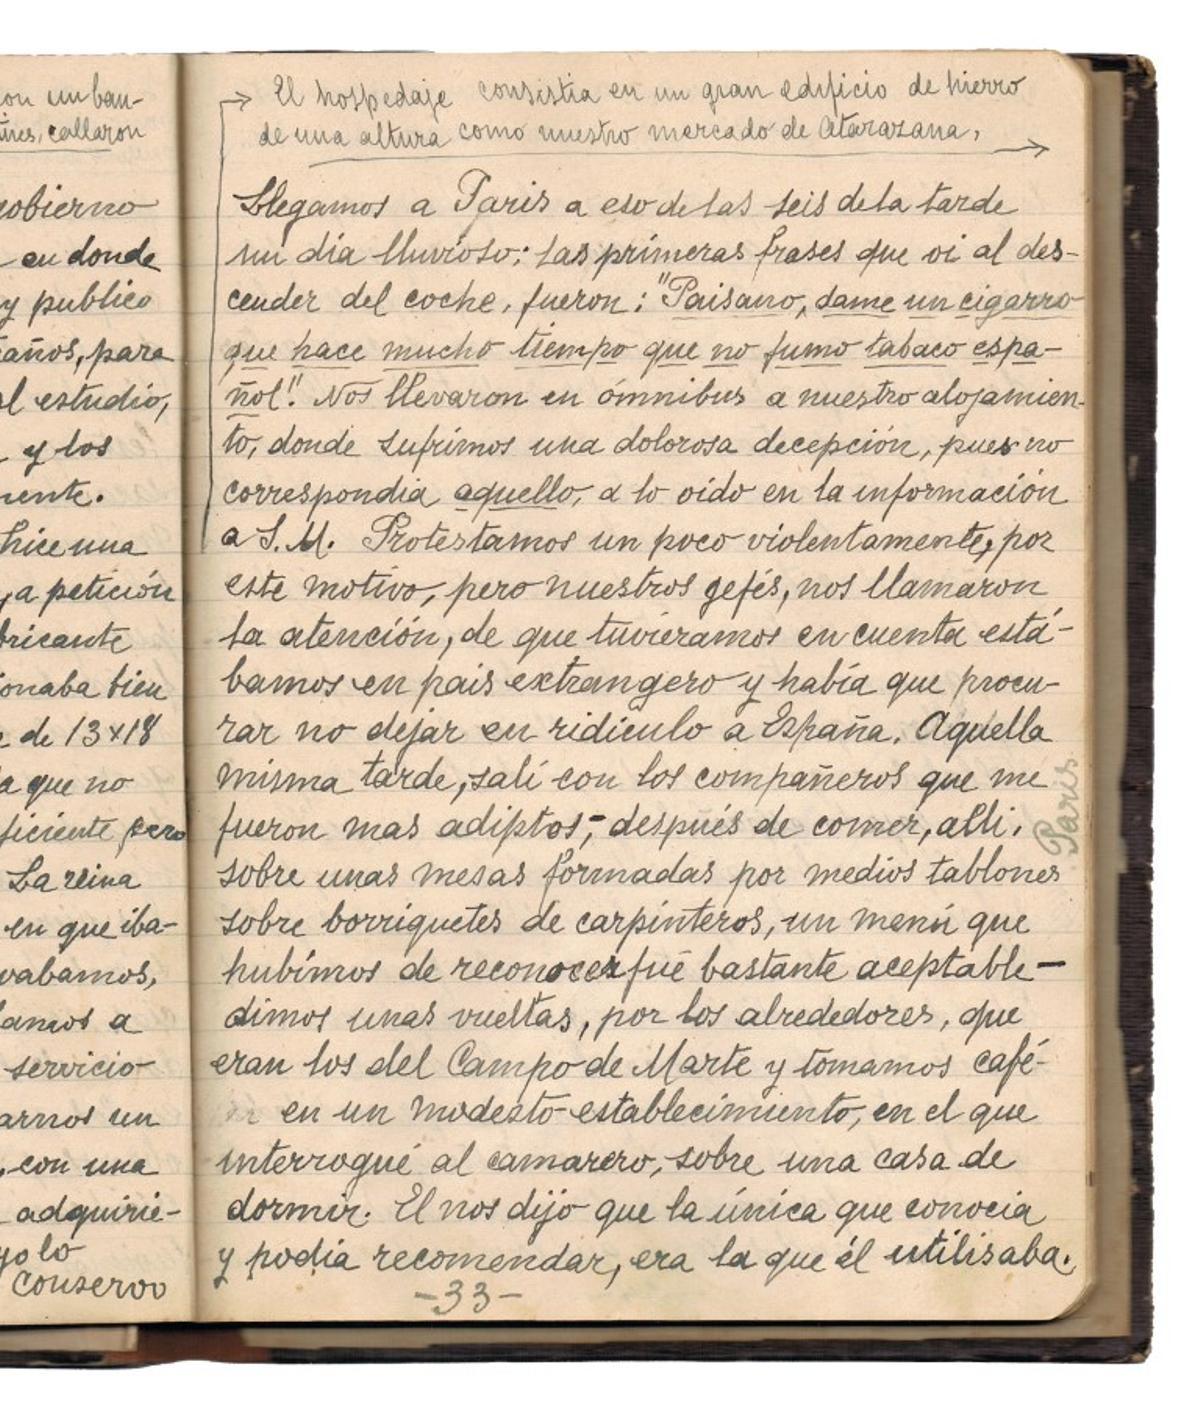 on un ban-
callaron
obierno
en donde
y publico
años, para
el estudio,
y los
mente.
hice una
, a petición
bricante
ionaba bien
de 13x18
a que no
ficiente, pero
La reina
en que iba-
vabamos,
amos a
servicio
arnos un
, con una
adquirié-
yo lo
conservo
El hospedaje consistia en un gran edificio de hierro
de una altura como nuestro mercado de Atarazana,
Llegamos a Paris a eso de las seis de la tarde
un dia lluvioso: Las primeras frases que oi al des-
cender del coche, fueron: "Paisano, dame un cigarro
que hace mucho tiempo que no fumo tabaco espa-
ñol". Nos llevaron en ómnibus a nuestro alojamien-
to, donde sufrimos una dolorosa decepción, pues no
correspondia aquello, a lo oido en la información
a S.M. Protestamos un poco violentamente, por
este motivo, pero nuestros gefés, nos llamaron
la atención, de que tuvieramos en cuenta está-
bamos en pais extrangero y había que procu-
rar no dejar en ridiculo a España. Aquella
misma tarde, salí con los compañeros que me
fueron mas adiptos,- después de comer, alli,
sobre unas mesas formadas por medios tablones
sobre borriquetes de carpinteros, un menú que
hubimos de reconocer fué bastante aceptable-
dimos unas vueltas, por los alrededores, que
eran los del Campo de Marte y tomamos café-
en un modesto establecimiento, en el que
interrogué al camarero, sobre una casa de
dormir. El nos dijo que la única que conocia
y podia recomendar, era la que él utilisaba.
-33-
Paris